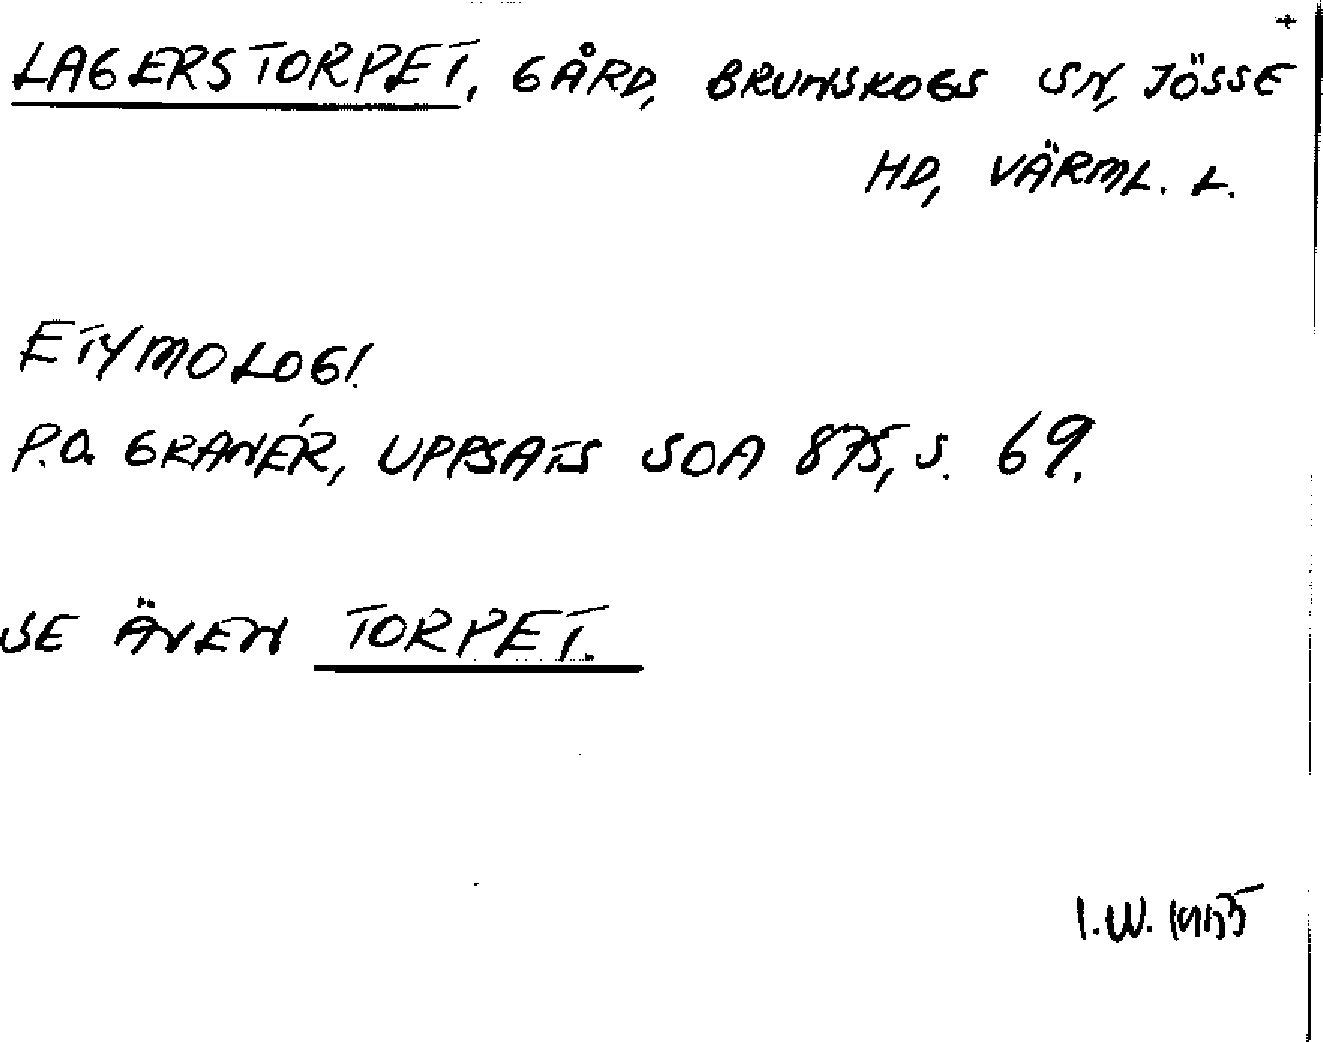 +
LAGERSTORPET, GÅRD, BRUNSKOGS SN, JÖSSE
HD, VÄRML. L.
ETYMOLOGI.
P.O. GRANÉR, UPPSATS SOA 875, S. 69.
SE ÄVEN TORPET.
I.W.